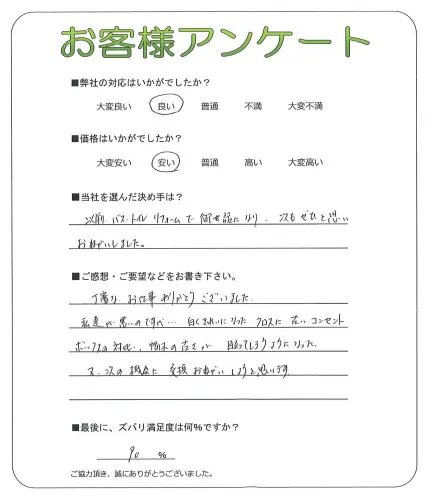 お客様アンケート
■弊社の対応はいかがでしたか?
大変良い 良い 普通 不満 大変不満
■価格はいかがでしたか?
大変安い 安い 普通 高い 大変高い
■当社を選んだ決め手は?
以前バス・トイレリフォームで御世話になり、次もぜひと思い
おねがいしました。
■ご感想・ご要望などをお書き下さい。
丁寧な お仕事 ありがとう ございました。
私達が悪いのですが… 白くきれいになった クロスに 古い コンセント
ボックスの対比、幅木の古さが 目立ってしまうようになった。
又、次の機会に 交換 おねがい しようと思います
■最後に、ズバリ満足度は何%ですか?
90 %
ご協力頂き、誠にありがとうございました。